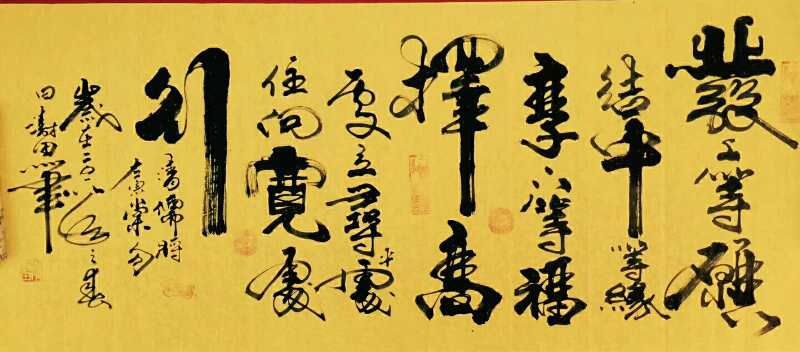 發上等願
結中等緣
享下等福
擇高
處立尋平處
住向寬處
行
儒將
左宗棠句
歲在二〇一八之春